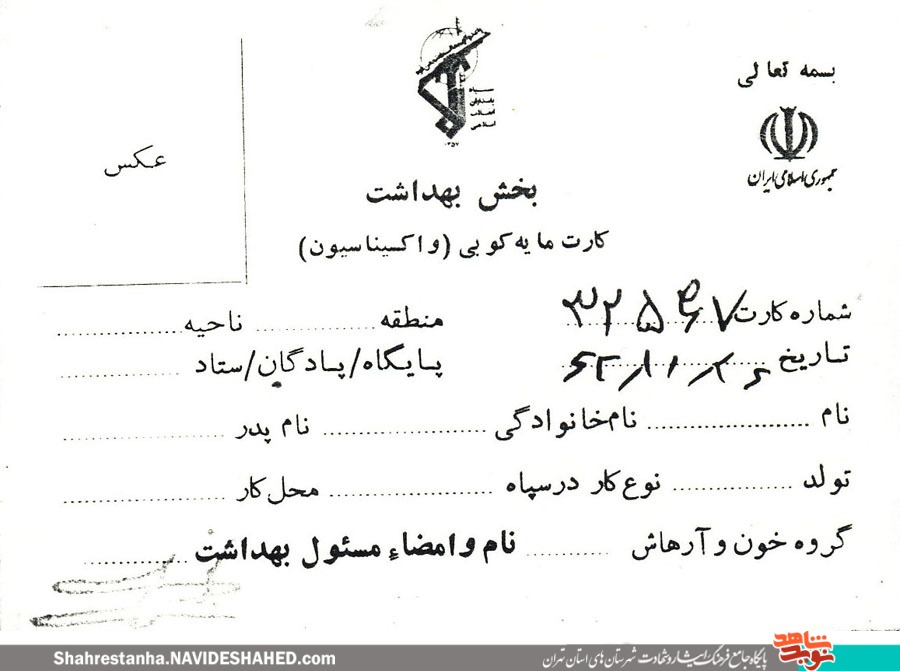 بسمه تعالی
جمهوری اسلامی ایران
سپاه
پاسداران
انقلاب
اسلامی
۱۳۵۷
عکس
بخش بهداشت
کارت مایه کوبی (واکسیناسیون)
شماره کارت ........ منطقه ........ ناحیه ........
تاریخ ۶۲/۱۱/۲۶ پایگاه/پادگان/ستاد ........
نام ........ نام خانوادگی ........ نام پدر ........
تولد ........ نوع کار در سپاه ........ محل کار ........
گروه خون و آرهاش ........ نام و امضاء مسئول بهداشت ........
نوید شاهد
پایگاه جامع فرهنگ ایثار و شهادت شهرستان های استان تهران
Shahrestanha.NAVIDESHAHED.com